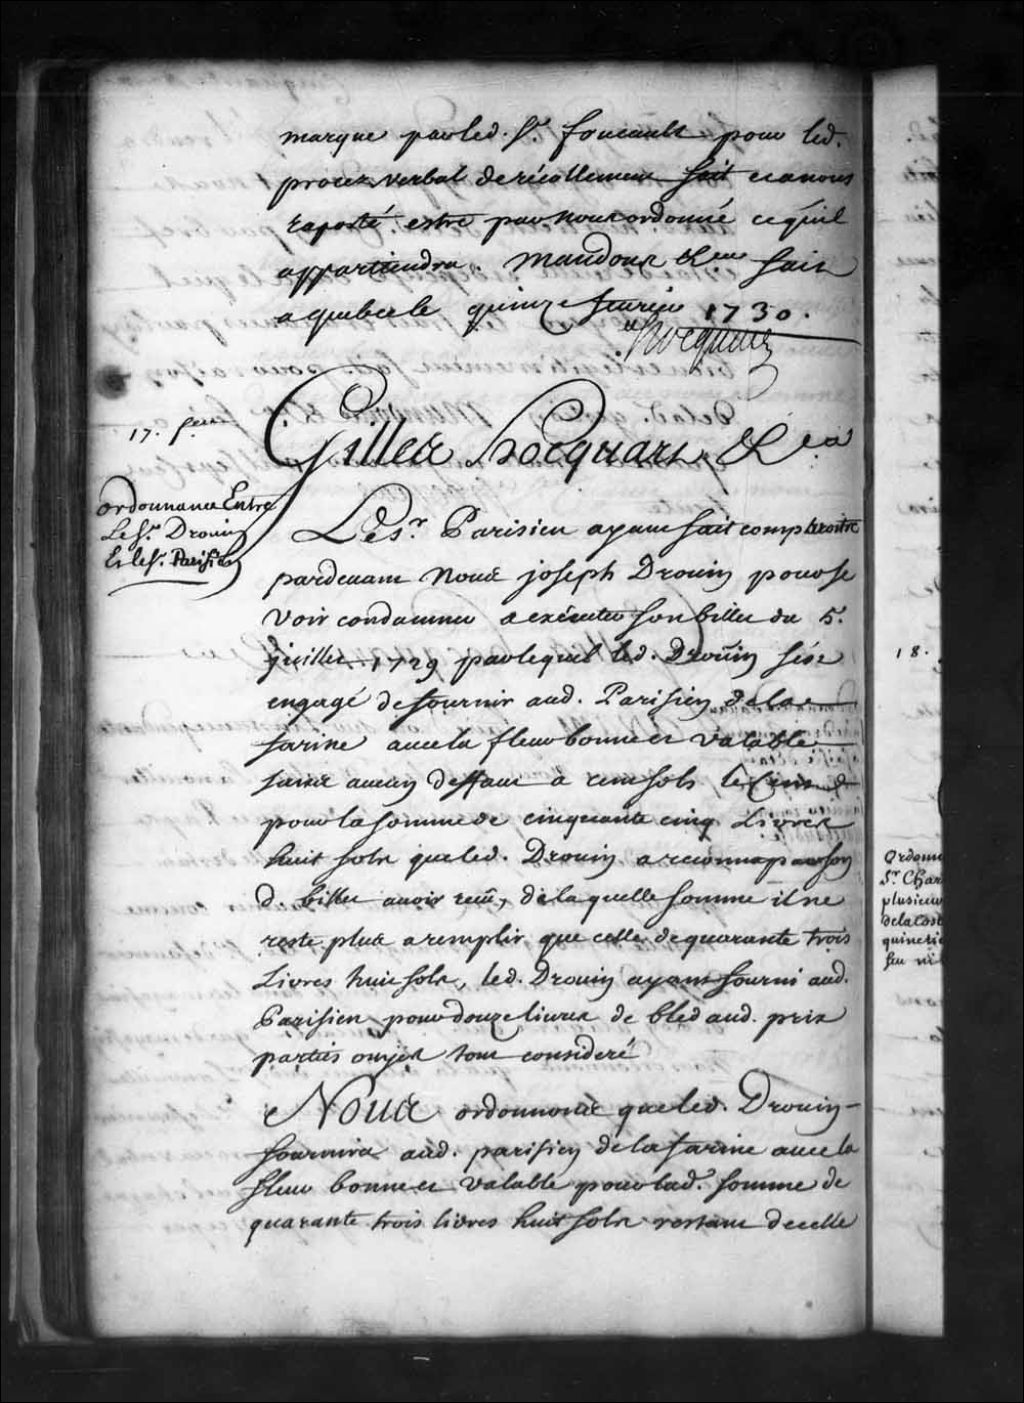 marque par led. Sr. foucault pour led.
procez verbal de récollement fait et a nous
raporté estre par nous ordonné ce quil
appartiendra. Mandons &ca fait
a quebec le quinze feurier 1730.
Hocquart
17. feurier
Gilles Hocquart &ca
ordonnance Entre
Le Sr. Drouin
Et le Sr. Parisien
Le Sr. Parisien ayant fait comparoitre
pardeuant Nous joseph Drouin pour se
voir condamner a exécuter son billet du 5.
juillet 1729 par lequel led. Drouin s'est
engagé de fournir aud. Parisien de la
farine auec la fleur bonne et valable
sans aucun deffaut a cent sols le Cent
pour la somme de cinquante cinq Livres
huit sols que led. Drouin a reconnu par son
d. billet auoir receu, de laquelle somme il ne
reste plus a remplir que celle de quarante trois
Livres huit sols, led. Drouin ayant fourni aud.
Parisien pour douze liures de bled aud. prix
parties ouyes tout consideré
Nous ordonnons que led. Drouin
fournira aud. parisien de la farine auec la
fleur bonne et valable pour lad. somme de
quarante trois livres huit sols restant de celle
18.
Ordonn
Sr. Char
plusieurs
de la Cost